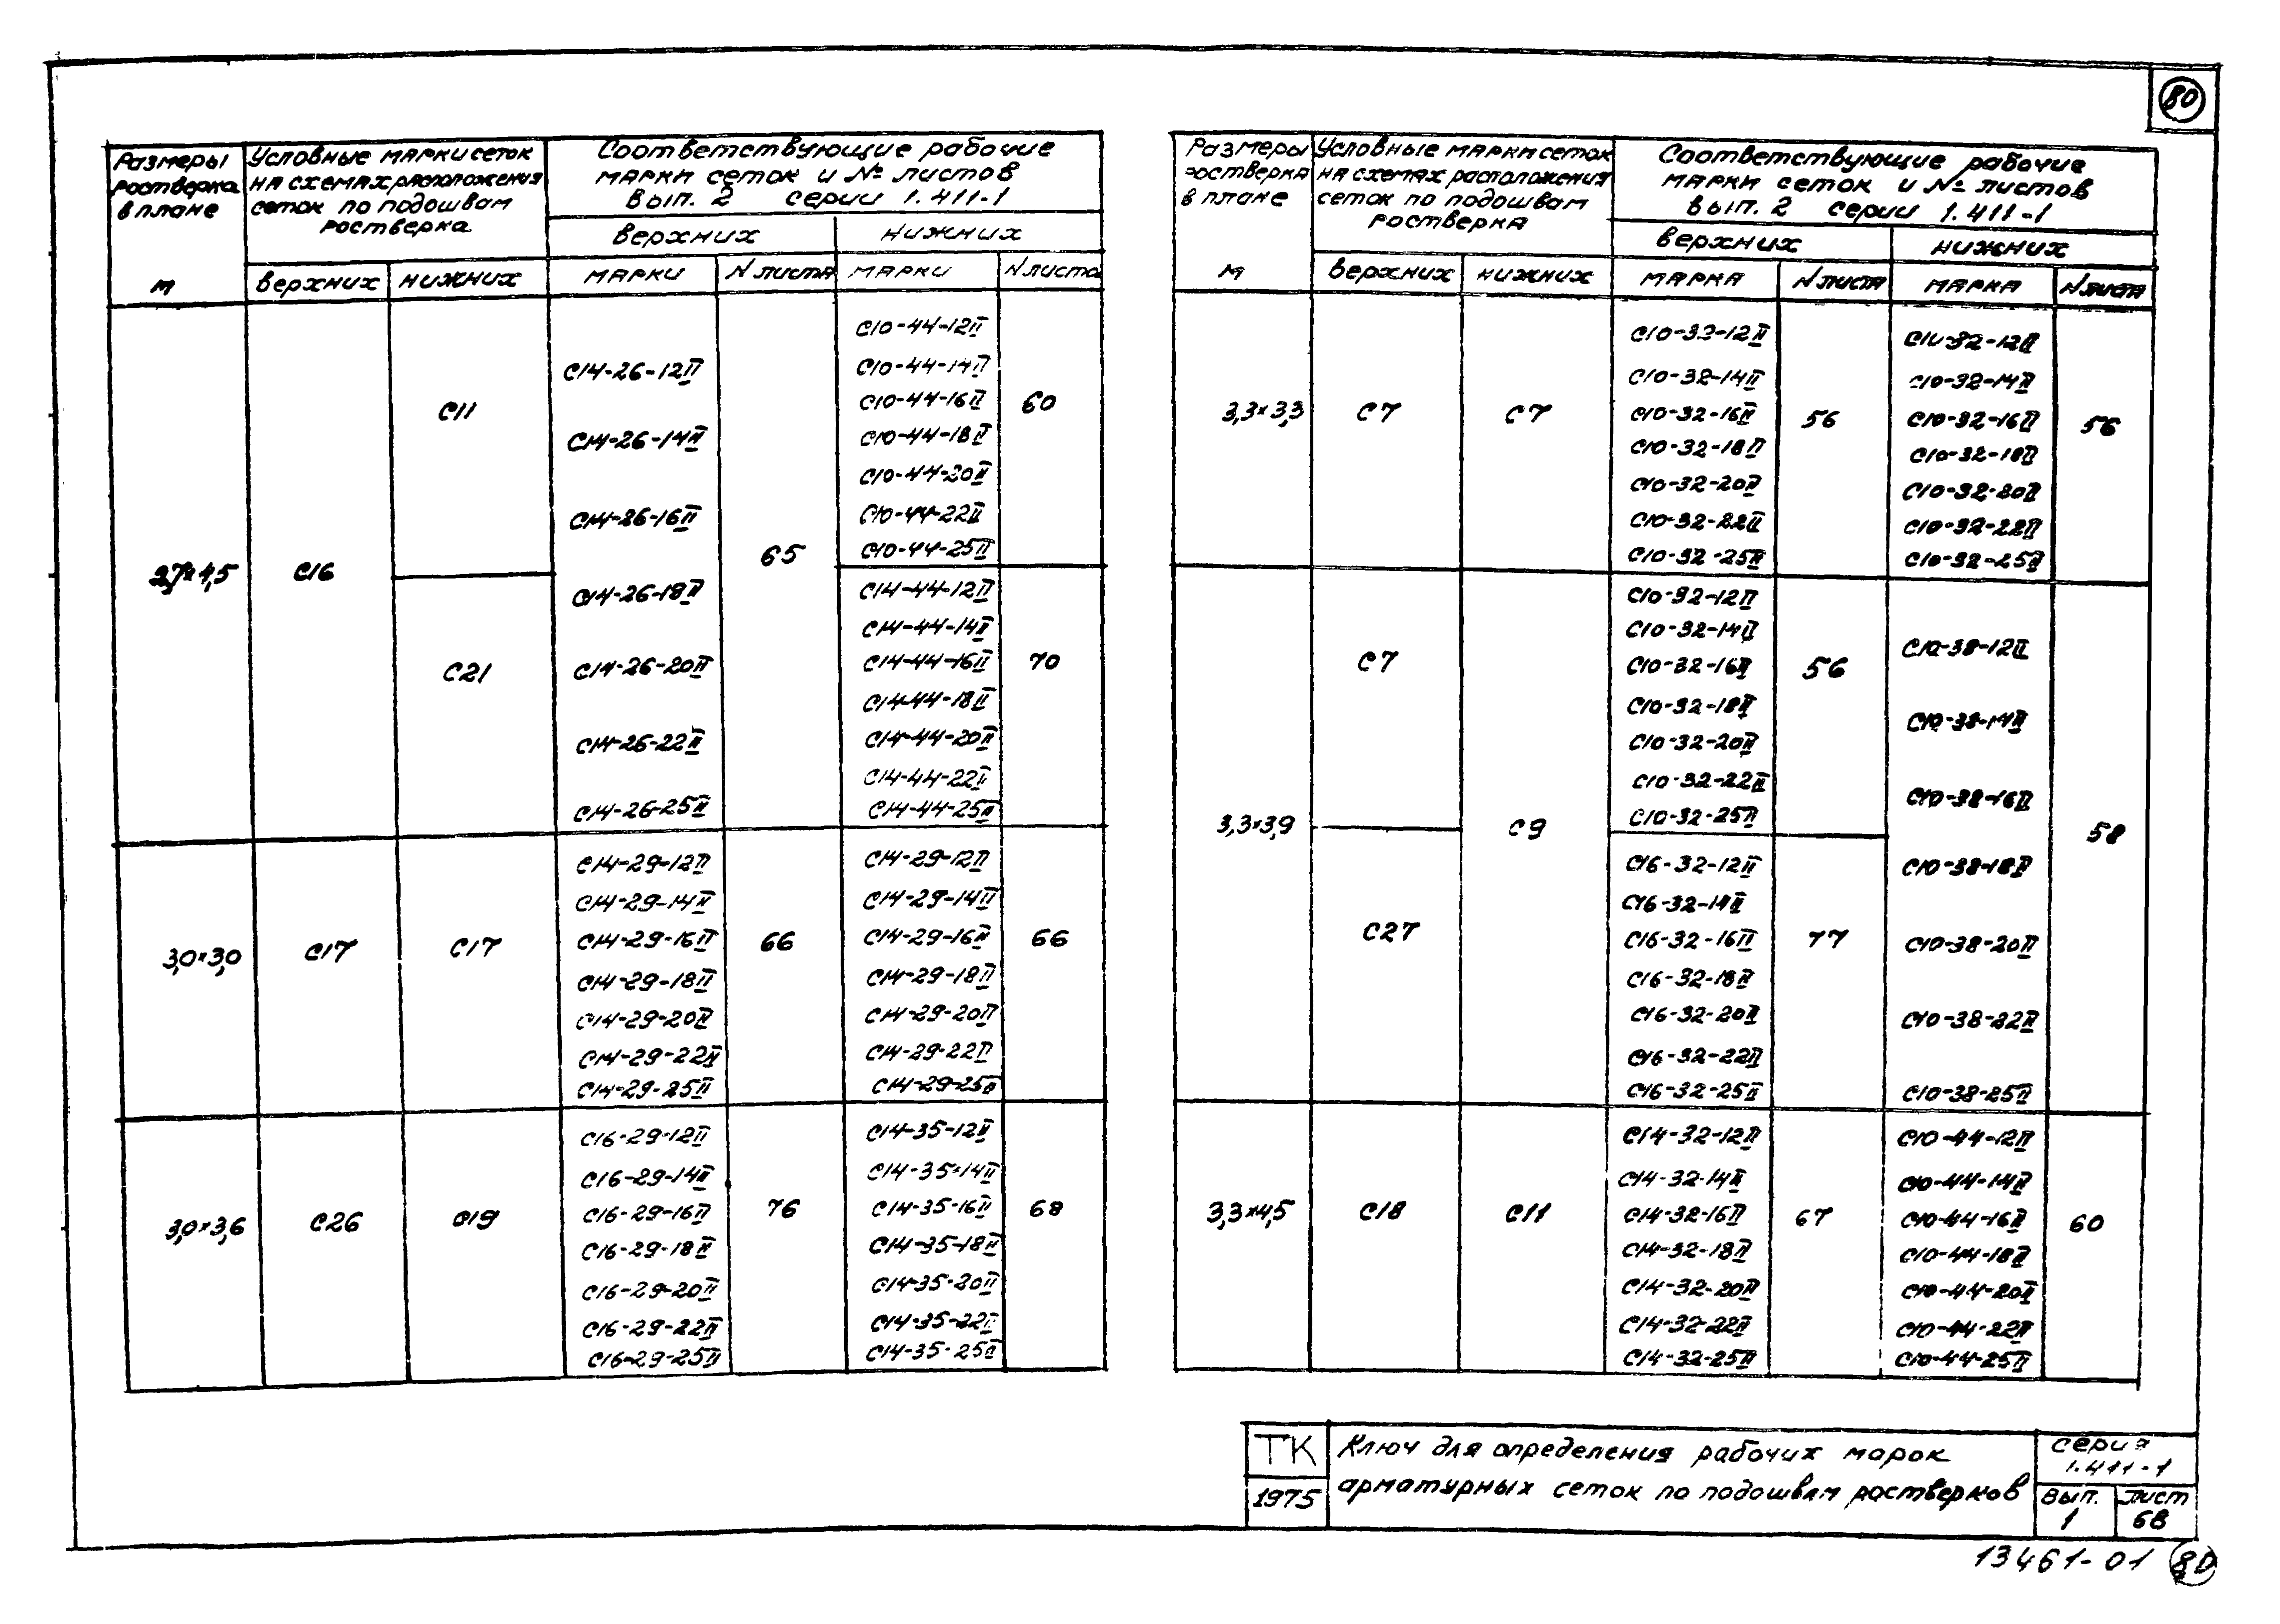 80
Размеры
ростверка
в плане
м
Условные марки сеток
на схемах расположения
сеток по подошвам
ростверка
верхних
нижних
Соответствующие рабочие
марки сеток и № листов
вып. 2 серии 1.411-1
верхних
нижних
марки
N листа
марки
N листа
2,7×4,5
С16
С11
С21
С14-26-12II
С14-26-14II
С14-26-16II
С14-26-18II
С14-26-20II
С14-26-22II
С14-26-25II
65
С10-44-12II
С10-44-14II
С10-44-16II
С10-44-18II
С10-44-20II
С10-44-22II
С10-44-25II
60
С14-44-12II
С14-44-14II
С14-44-16II
С14-44-18II
С14-44-20II
С14-44-22II
С14-44-25II
70
3,0×3,0
С17
С17
С14-29-12II
С14-29-14II
С14-29-16II
С14-29-18II
С14-29-20II
С14-29-22II
С14-29-25II
66
С14-29-12II
С14-29-14II
С14-29-16II
С14-29-18II
С14-29-20II
С14-29-22II
С14-29-25II
66
3,0×3,6
С26
С19
С16-29-12II
С16-29-14II
С16-29-16II
С16-29-18II
С16-29-20II
С16-29-22II
С16-29-25II
76
С14-35-12II
С14-35-14II
С14-35-16II
С14-35-18II
С14-35-20II
С14-35-22II
С14-35-25II
68
Размеры
ростверка
в плане
м
Условные марки сеток
на схемах расположения
сеток по подошвам
ростверка
верхних
нижних
Соответствующие рабочие
марки сеток и № листов
вып. 2 серии 1.411-1
верхних
нижних
марка
N листа
марка
N листа
3,3×3,3
С7
С7
С10-32-12II
С10-32-14II
С10-32-16II
С10-32-18II
С10-32-20II
С10-32-22II
С10-32-25II
56
С10-32-12II
С10-32-14II
С10-32-16II
С10-32-18II
С10-32-20II
С10-32-22II
С10-32-25II
56
3,3×3,9
С7
С27
С9
С10-32-12II
С10-32-14II
С10-32-16II
С10-32-18II
С10-32-20II
С10-32-22II
С10-32-25II
56
С16-32-12II
С16-32-14II
С16-32-16II
С16-32-18II
С16-32-20II
С16-32-22II
С16-32-25II
77
С10-38-12II
С10-38-14II
С10-38-16II
С10-38-18II
С10-38-20II
С10-38-22II
С10-38-25II
58
3,3×4,5
С18
С11
С14-32-12II
С14-32-14II
С14-32-16II
С14-32-18II
С14-32-20II
С14-32-22II
С14-32-25II
67
С10-44-12II
С10-44-14II
С10-44-16II
С10-44-18II
С10-44-20II
С10-44-22II
С10-44-25II
60
ТК
1975
Ключ для определения рабочих марок
арматурных сеток по подошвам ростверков
серия
1.411-1
Вып.
1
лист
68
13461-01 80